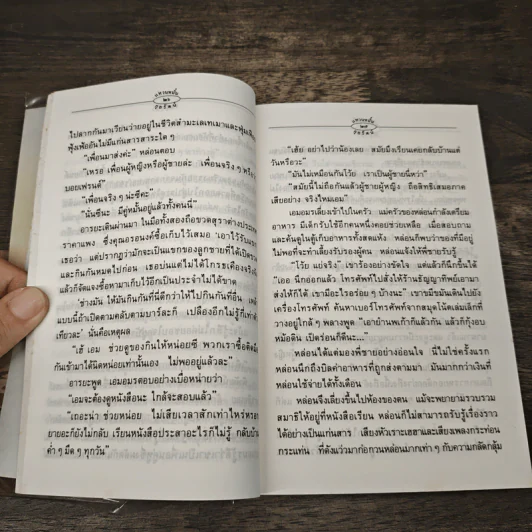 ไปลากกันมาเรียนว่ายอยู่ในชีวิตสำมะเลเทเมาและฟุ่ม
ฟุ้งเฟ้ออันไม่มีแก่นสารสาระใด ๆ
"เพื่อนมาส่งค่ะ" หล่อนตอบ
"เหรอ เพื่อนผู้หญิงหรือผู้ชายล่ะ เพื่อนจริง ๆ หรือ
บอยเฟรนด์"
"เพื่อนจริง ๆ น่ะซีคะ"
"นั่นซีนะ มีคู่หมั้นอยู่แล้วทั้งคนนี่"
อารยะเดินผ่านมา ในมือทั้งสองถือขวดสุราต่างประเทศ
ราคาแพง ซึ่งคุณอรอนงค์ซื้อเก็บไว้เสมอ "เอาไว้รับแขก"
เธอว่า แต่ปรากฏว่ามักจะเป็นแขกของลูกชายที่ได้เปิดขวด
และกินกันหมดไปก่อน เธอบ่นแต่ไม่ได้โกรธเคืองจริงจัง
แล้วก็จัดแจงซื้อหามาเก็บไว้อีกเป็นประจำไม่ได้ขาด
"ช่างมัน ให้มันกินกันที่นี่ดีกว่าให้ไปกินกันที่อื่น
แบบนี้ถ้าเปิดตามคลับตามบาร์ล่ะก็ เปลืองอีกไม่รู้กี่เท่า
เทียวละ" นั่นคือเหตุผล
"เฮ้ เอม ช่วยดูของกินให้หน่อยซี พวกเราซื้อติดมือ
กันเข้ามาได้นิดหน่อยเท่านั้นเอง ไม่พออยู่แล้วละ"
อารยะพูด เอมอมรตอบอย่างเบื่อหน่ายว่า
"เอมจะต้องดูหนังสือนะ ใกล้จะสอบแล้ว"
"เถอะน่า ช่วยหน่อย ไม่เสียเวลาสักเท่าไหร่หรอก
ยายอะก็ยังไม่กลับ เรียนหนังสือประสาอะไรก็ไม่รู้ กลับบ้าน
ค่ำ ๆ มืด ๆ ทุกวัน"
"เฮ้ย อย่าไปว่าน้องเลย สมัยมึงเรียนเคยกลับบ้านแต่
วันหรือวะ"
"มันไม่เหมือนกันโว้ย เราเป็นผู้ชายนี่หว่า"
"สมัยนี้ไม่ถือกันแล้วผู้ชายผู้หญิง ถือสิทธิเสมอภาค
เสียอย่าง จริงไหมเอม"
เอมอมรเลี่ยงเข้าไปในครัว แม่ครัวของหล่อนกำลังเตรียม
อาหาร มีเด็กรับใช้อีกคนหนึ่งคอยช่วยเหลือ เมื่อสอบถาม
และค้นดูในตู้เก็บอาหารทั้งสดแห้ง หล่อนก็พบว่าของที่มีอยู่
ไม่พอที่จะทำเลี้ยงรับรองผู้คน หล่อนแจ้งให้พี่ชายรับรู้
"โว้ย แย่จริง" เขาร้องอย่างขัดใจ แต่แล้วก็นึกขึ้นได้
"เออ นึกออกแล้ว โทรศัพท์ไปสั่งให้ร้านธัญญาทิพย์เอามา
ส่งให้ก็ได้ เขามีอะไรอร่อย ๆ บ้างนะ" เขาขมีขมันเดินไปยัง
เครื่องโทรศัพท์ ค้นหาเบอร์โทรศัพท์จากสมุดโน้ตเล่มเล็กที่
วางอยู่ใกล้ ๆ พลางพูด "เอาบ้านพเก้าก็แล้วกัน แล้วก็กุ้งอบ
หม้อดิน เป็ดร่อนก็ดีนะ..."
หล่อนได้แต่มองพี่ชายอย่างอ่อนใจ นี่ไม่ใช่ครั้งแรก
หล่อนนึกถึงบิลค่าอาหารที่ถูกส่งตามมา มันมากกว่าเงินที่
หล่อนใช้จ่ายได้ทั้งเดือน
หล่อนจึงเลี่ยงขึ้นไปห้องของตน แม้จะพยายามรวบรวม
สมาธิให้อยู่ที่หนังสือเรียน หล่อนก็ไม่สามารถรับรู้เรื่องราว
ได้อย่างเป็นแก่นสาร เสียงหัวเราะเฮฮาและเสียงเพลงกระท่อน
กระแท่น ที่ดังแว่วมาก่อกวนหล่อนมากเท่า ๆ กับความกลัดกลุ้ม